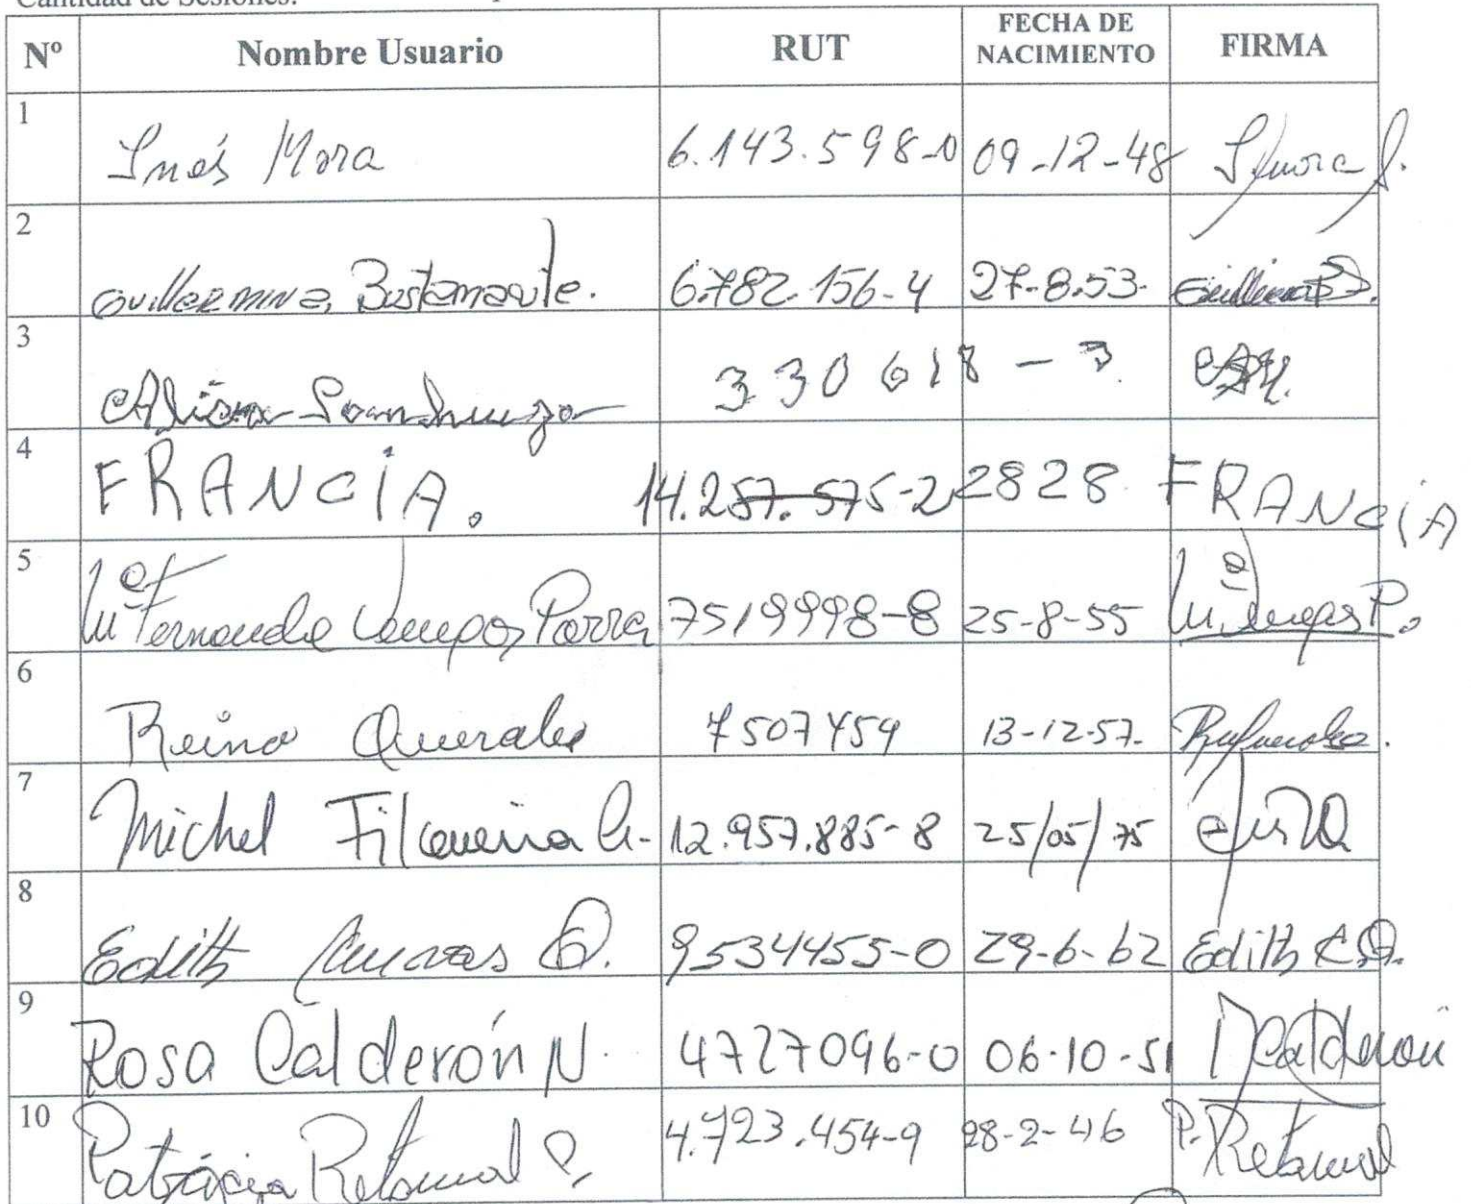 Cantidad de Sesiones:
Nº Nombre Usuario RUT FECHA DE NACIMIENTO FIRMA
1 Inés Mora 6.143.598-0 09-12-48
2 Guillermina Bustamante. 6.782.156-4 27-8.53.
3 330618-3
4 FRANCIA. 14.257.575-2 2828 FRANCIA
5 Mª Fernanda Campos Parra 7519998-8 25-8-55
6 Reina Querales 7507459 13-12-57.
7 Michel G. 12.957.885-8 25/05/75
8 Edith Cuevas Q. 9534455-0 29-6-62 Edith C.Q.
9 Rosa Calderón N. 4727096-0 06-10-51 Calderón
10 Patricia Retamal P. 4.723.454-9 28-2-46 P. Retamal